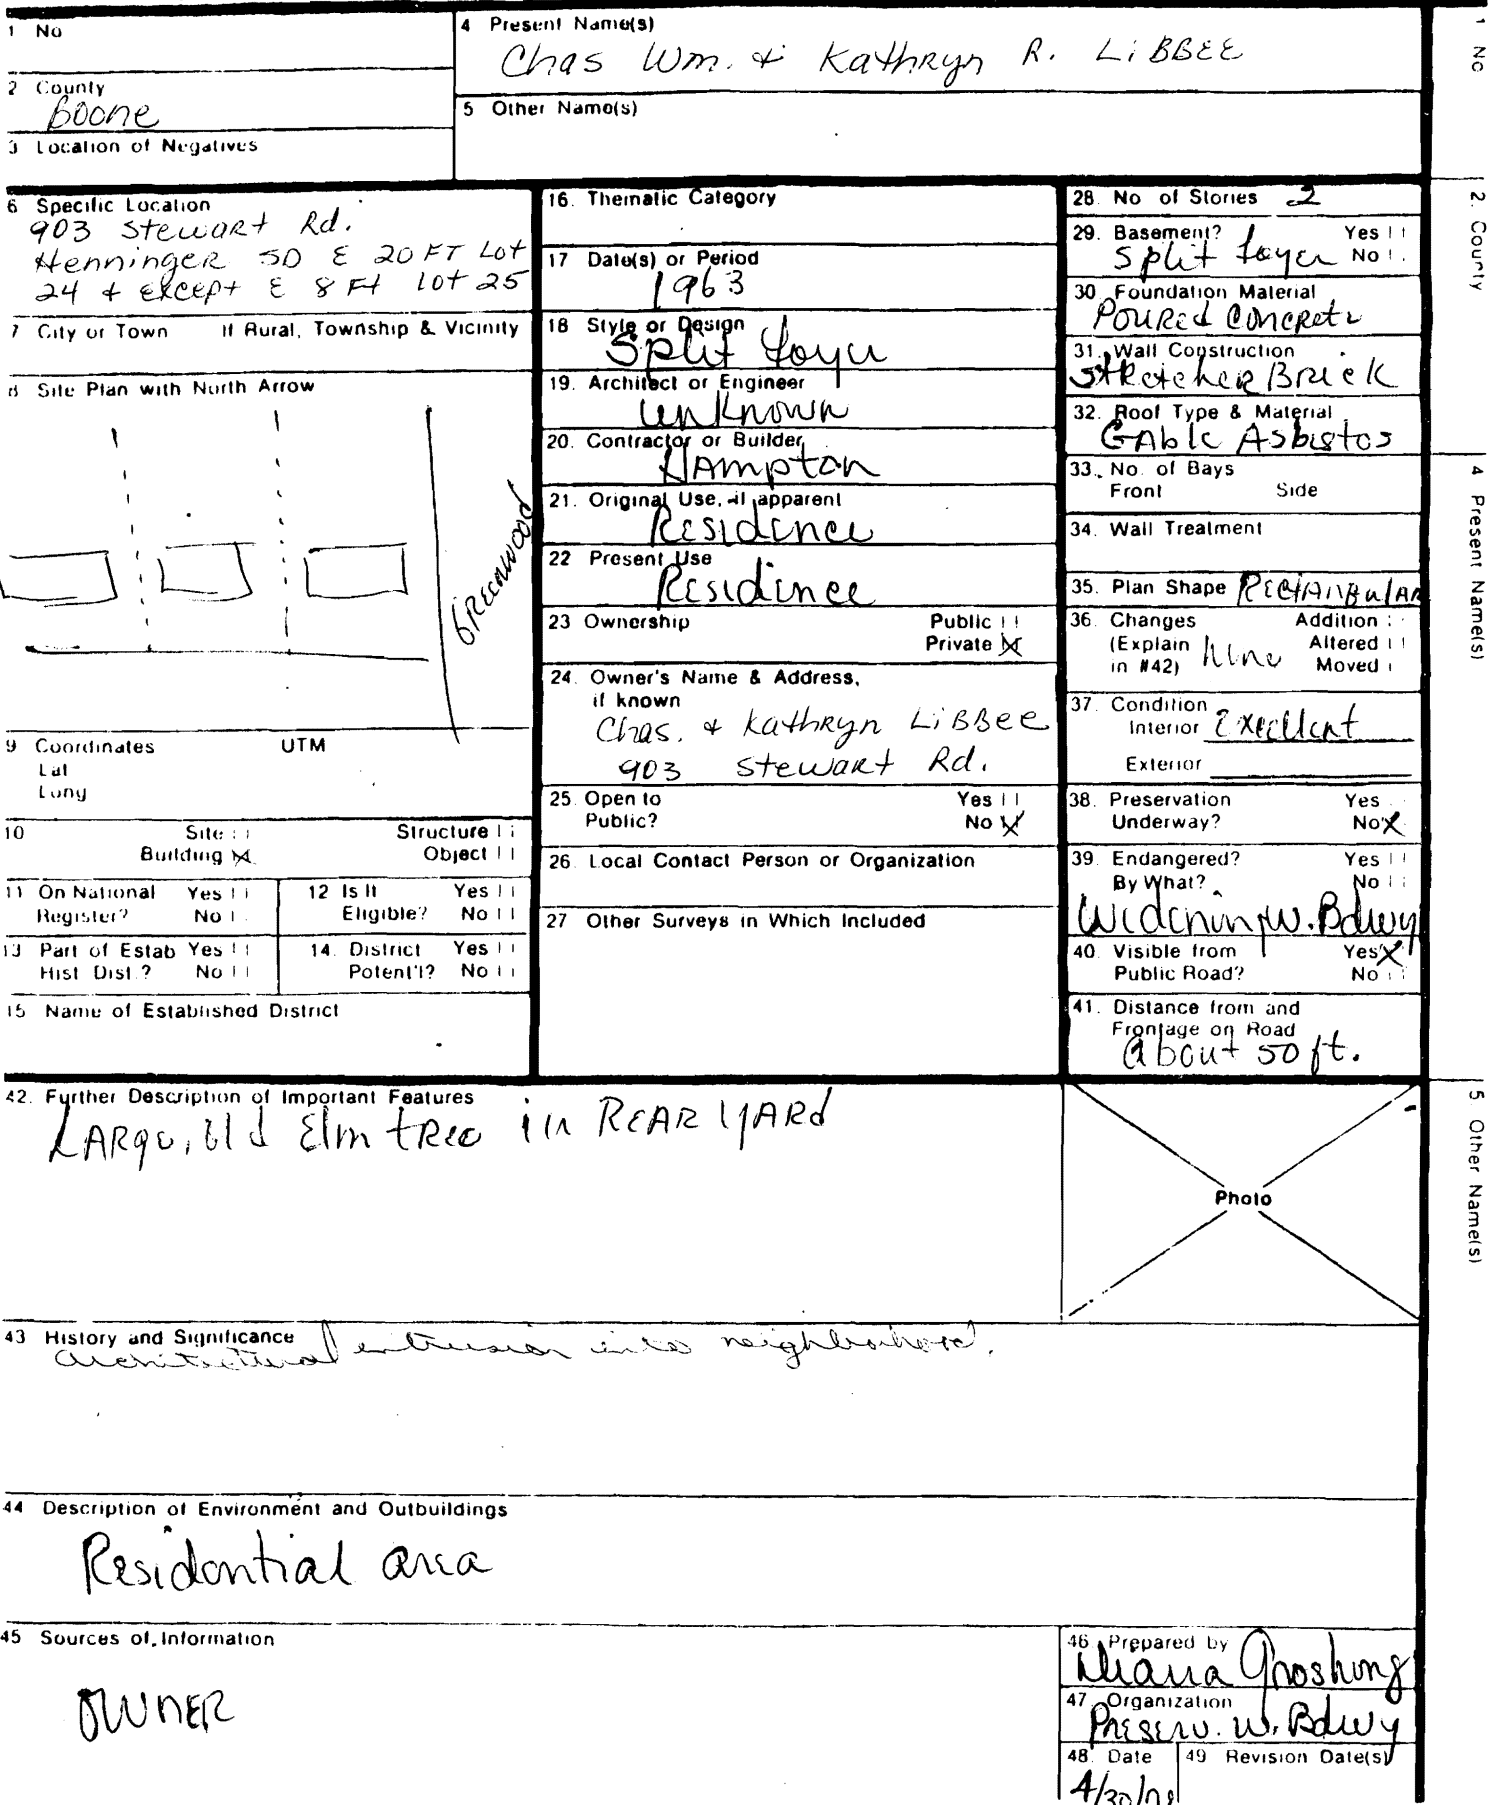 1 No
4 Present Name(s)
Chas Wm. & Kathryn R. LiBBEE
2 County
Boone
5 Other Name(s)
3 Location of Negatives
6 Specific Location
903 Stewart Rd.
Henninger SD E 20 FT Lot
24 & except E 8 Ft lot 25
7 City or Town If Rural, Township & Vicinity
8 Site Plan with North Arrow
Greenwood
9 Coordinates UTM
Lat
Long
10 Site
Structure
Building
Object
11 On National Register? Yes No
12 Is It Eligible? Yes No
13 Part of Estab Hist Dist.? Yes No
14. District Potent'l? Yes No
15 Name of Established District
16. Thematic Category
17 Date(s) or Period
1963
18 Style or Design
Split foyer
19. Architect or Engineer
unknown
20. Contractor or Builder
Hampton
21. Original Use, if apparent
Residence
22 Present Use
Residence
23 Ownership Public
Private X
24. Owner's Name & Address,
if known
Chas. & Kathryn LiBBee
903 Stewart Rd.
25. Open to Yes
Public? No X
26. Local Contact Person or Organization
27 Other Surveys in Which Included
28. No of Stories 2
29. Basement? Yes
Split foyer No
30 Foundation Material
Poured Concrete
31. Wall Construction
Stretcher Brick
32. Roof Type & Material
Gable Asbestos
33. No. of Bays
Front Side
34. Wall Treatment
35. Plan Shape Rectangular
36. Changes Addition
(Explain None Altered
in #42) Moved
37. Condition
Interior Excellent
Exterior
38. Preservation Yes
Underway? No X
39. Endangered? Yes
By What? No
Widening W. Bdwy
40. Visible from Yes X
Public Road? No
41. Distance from and
Frontage on Road
About 50 ft.
42. Further Description of Important Features
Large, old Elm tree in Rear yard
Photo
43 History and Significance
architectural intrusion into neighborhood.
44 Description of Environment and Outbuildings
Residential area
45 Sources of Information
OWNER
46. Prepared by
Diana Groshong
47. Organization
Preserv. W. Bdwy
48. Date
49 Revision Date(s)
1 No
2. County
4 Present Name(s)
5 Other Name(s)